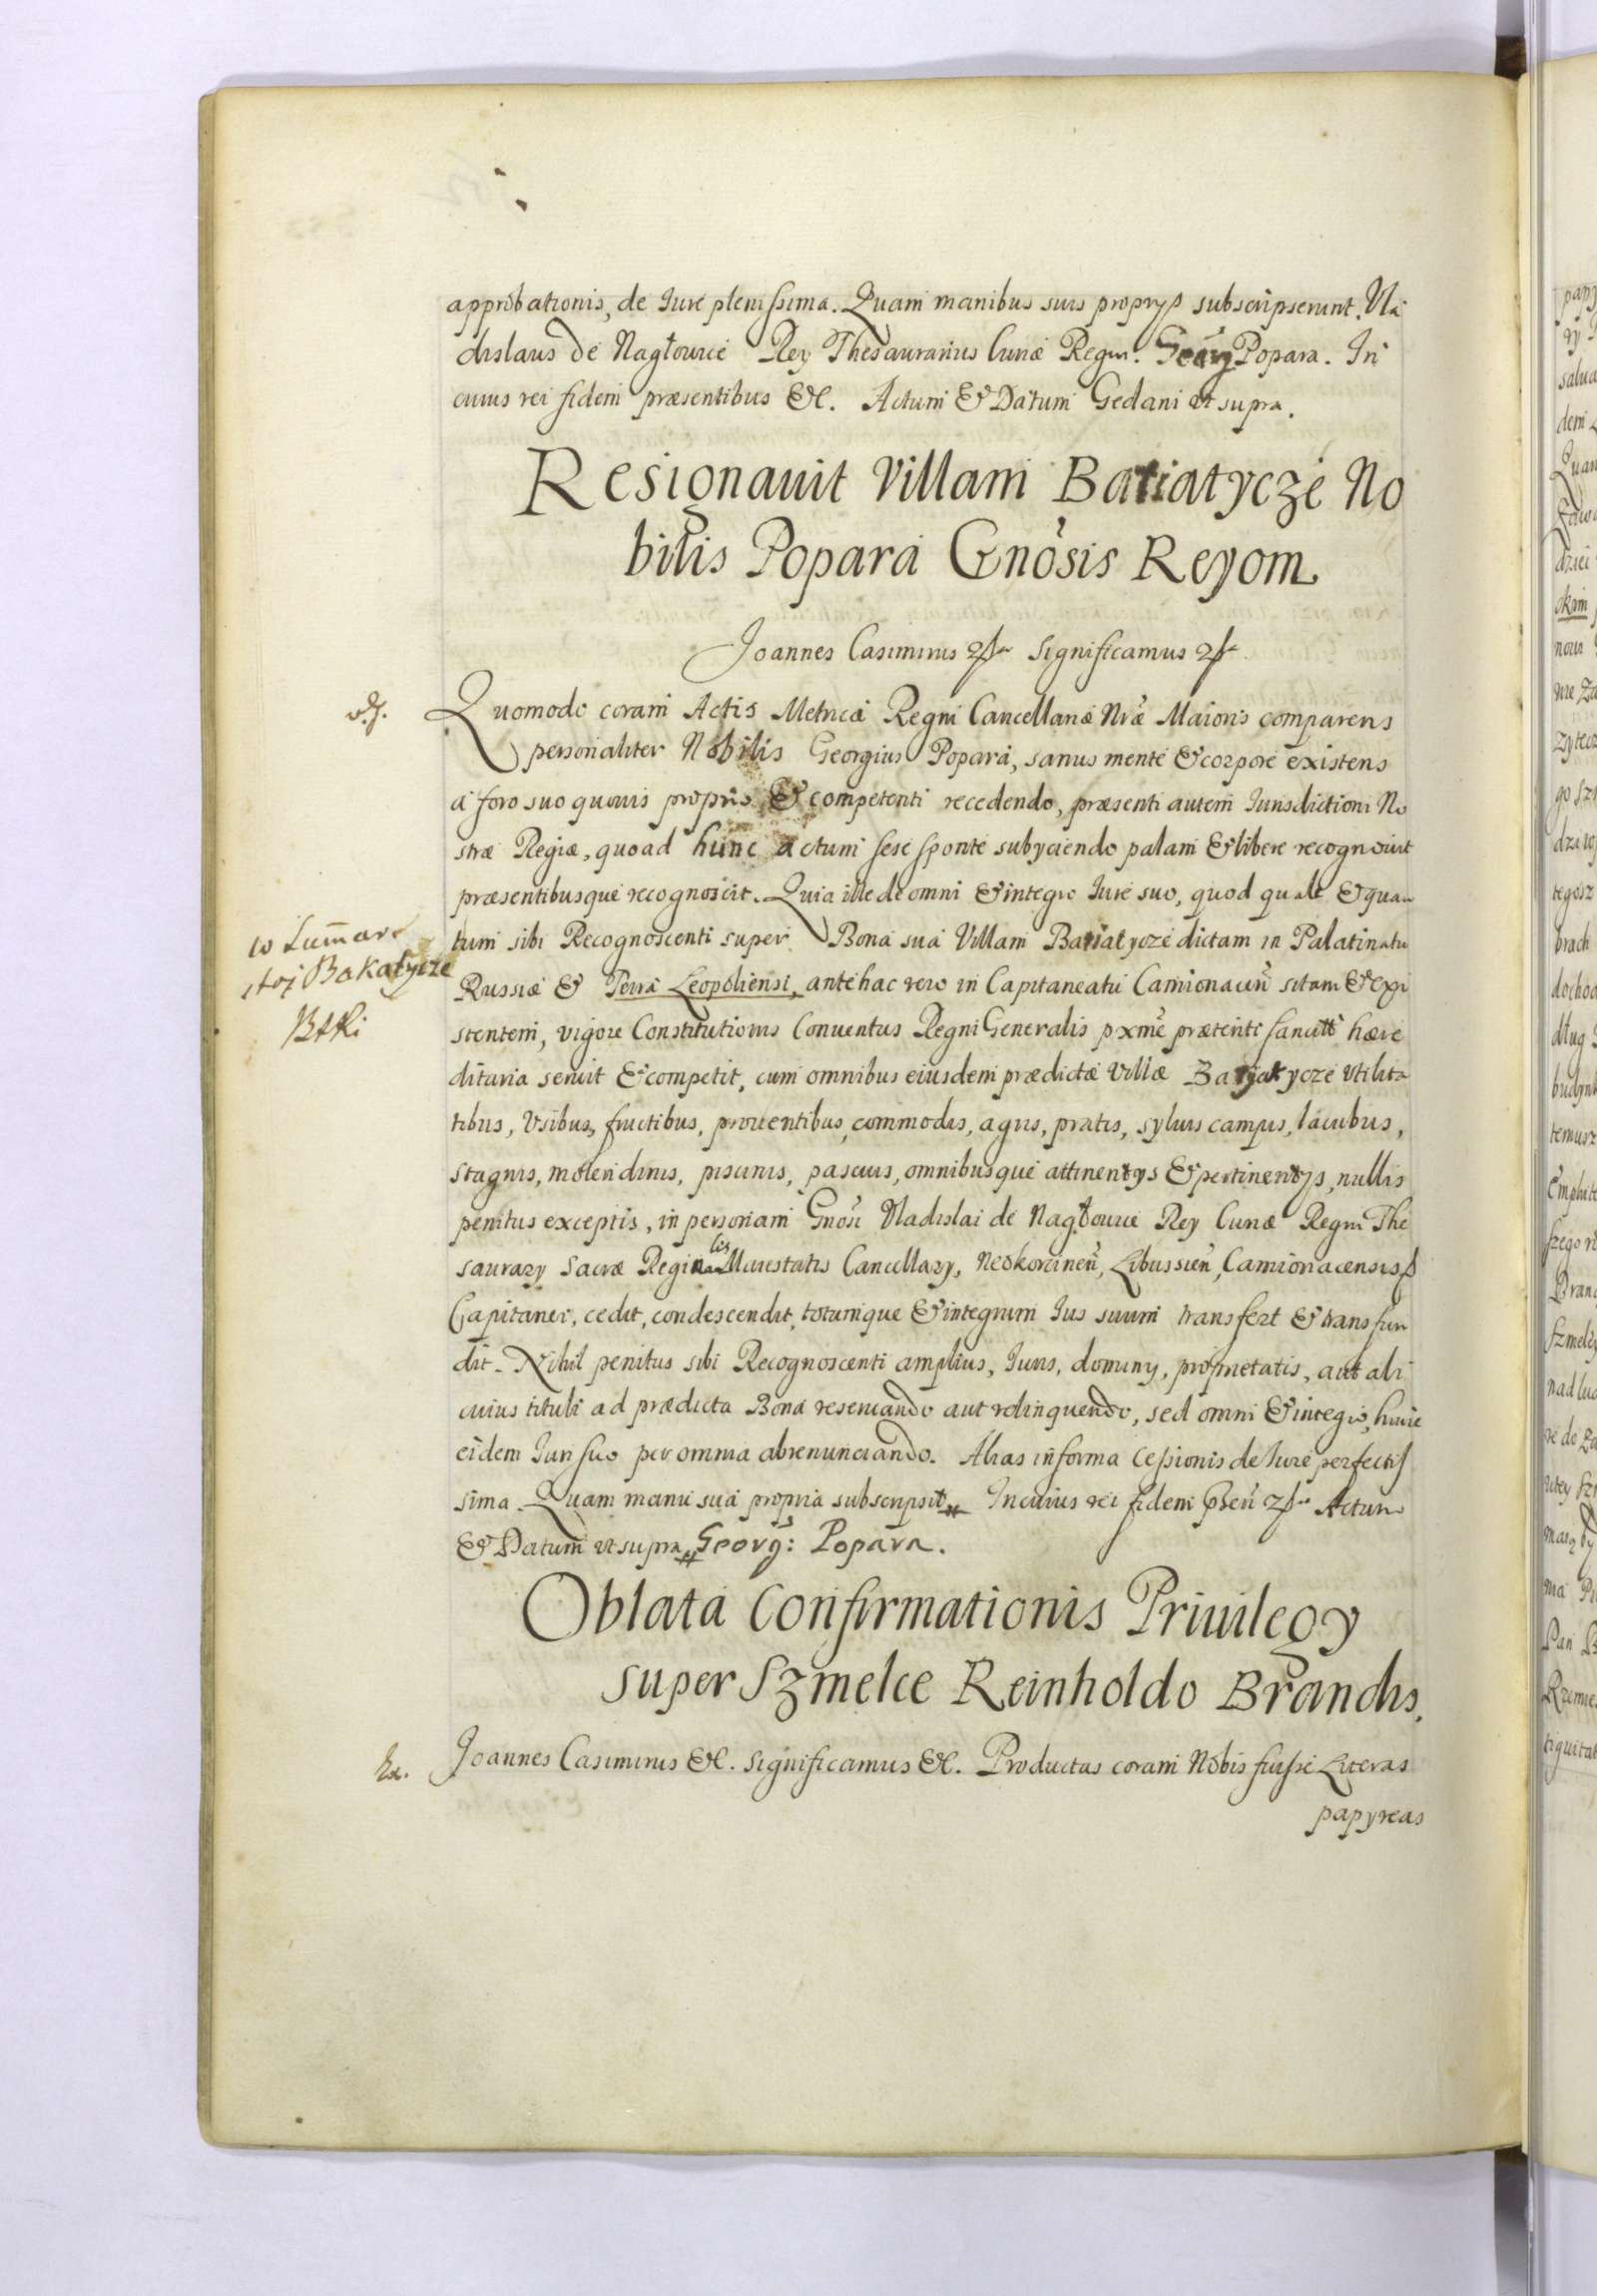 approbationis, de Iure plenissima. Quam manibus suis proprijs subscripserunt. Vla
dislaus de Nagłowice Rey Thesaurarius Curiæ Regni. Georg Popara. In
cuius rei fidem præsentibus &c. Actum & Datum Gedani vt supra.
Resignauit Villam Batiatycze No
bilis Popara Gnosis Reyom
Joannes Casimirus significamus
Quomodo coram Actis Metricæ Regni Cancellariæ Nræ Maioris comparens
personaliter Nobilis Georgius Popara, sanus mente & corpore existens
a foro suo quouis proprio & competenti recedendo, præsenti autem Iurisdictioni No
stræ Regiæ, quoad hunc actum sese sponte subyciendo palam & libere recognouit
præsentibusque recognoscit. Quia ille de omni & integro Iure suo, quod quale & quan
tum sibi Recognoscenti super Bona sua Villam Batiatycze dictam in Palatinatu
Russiæ & Terra Leopoliensi, antehac vero in Capitaneatu Camionacen sitam & exi
stentem, vigore Constitutionis Conuentus Regni Generalis pxme præteriti sancitæ hære
ditaria seruit & competit, cum omnibus eiusdem prædictæ Villæ Batyatycze vtilita
tibus, Vsibus, fructibus, prouentibus, commodis, agris, pratis, syluis campis, lacubus,
stagnis, molendinis, piscinis, pascuis, omnibusque attinentys & pertinentys, nullis
penitus exceptis, in personam Gnosi Vladislai de Nagłowice Rey Curiæ Regni The
saurary Sacræ Reginalis Maiestatis Cancellary, Neokorcinen, Libussien, Camionacensis
Capitanei, cedit, condescendit, totumque & integrum Ius suum transfert & transfun
dit. Nihil penitus sibi Recognoscenti amplius, Iuris, dominy, proprietatis, aut ali
cuius tituli ad prædicta Bona reseruando aut relinquendo, sed omni & integro, huic
eidem Iuri suo per omnia abrenunciando. Alias in forma Cessionis de Iure perfectis
sima. Quam manu sua propria subscripsit In cuius rei fidem pñen Actum
& Datum vt supra Georg: Popara.
w Lummare
stoj Bakatycze
Btki
Oblata Confirmationis Priuilegy
super Szmelce Reinholdo Brandis.
Joannes Casimirus &c. significamus &c. Productas coram Nobis fuisse Literas
papyreas